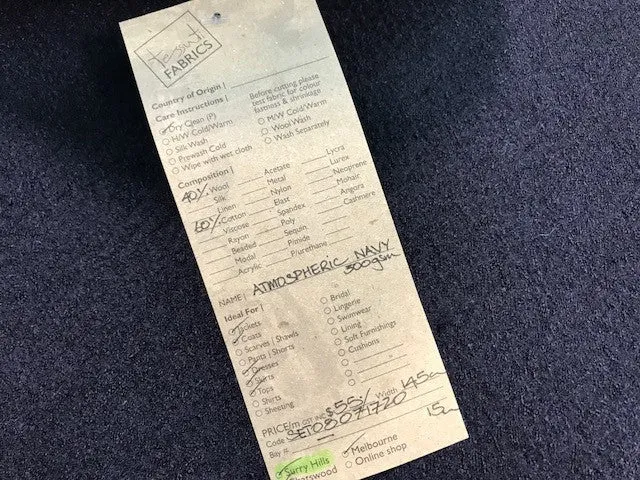 tessuti
FABRICS
Country of Origin |
Care Instructions |
Before cutting please
test fabric for colour
fastness & shrinkage
Dry Clean (P)
H/W Cold/Warm
Silk Wash
Prewash Cold
Wipe with wet cloth
M/W Cold/Warm
Wool Wash
Wash Separately
Composition |
40% Wool Acetate Lycra
Silk Metal Lurex
Linen Nylon Neoprene
60% Cotton Elast Mohair
Viscose Spandex Angora
Rayon Poly Cashmere
Beaded Sequin
Modal P/mide
Acrylic P/urethane
NAME | ATMOSPHERIC NAVY
300gsm
Ideal For |
Jackets
Coats
Scarves | Shawls
Pants | Shorts
Dresses
Skirts
Tops
Shirts
Sheeting
Bridal
Lingerie
Swimwear
Lining
Soft Furnishings
Cushions
PRICE/m GST INC $55/ Width 145cm
Code SET08071720
Bay #
Surry Hills
Chatswood
Melbourne
Online shop